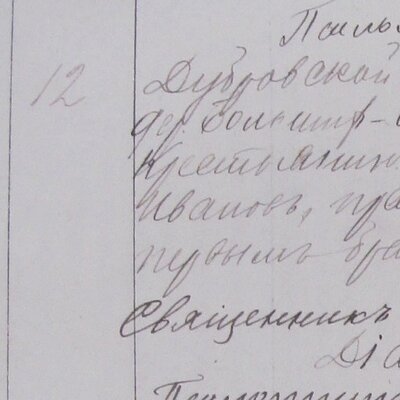 12
Дубровской
дер. Больш
Крестьянин
Ивановъ, пра
первымъ бра
Священникъ
Діа